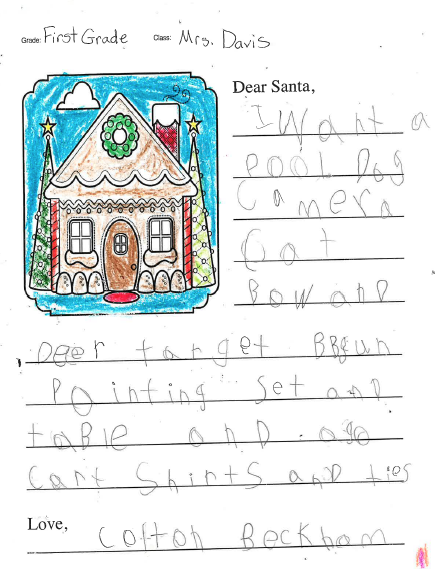 Grade: First Grade Class: Mrs. Davis
Dear Santa,
I Want a
Pool Dog
Camera
Cat
Bow anD
Deer target BBgun
Pointing Set and
taBle and a go
Cart Shirts anD ties
Love,
Colton Beckham